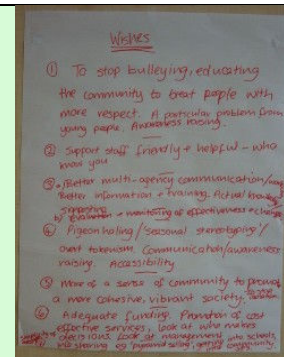 Wishes
① To stop bulleying, educating
the community to treat people with
more respect. A particular problem from
young people. Awareness raising.
② Support staff friendly + helpful - who
know you
③ Better multi-agency communication/
Better information + training. Actual
+ monitoring of effectiveness + change
④ Pigeon holing / seasonal stereotyping /
overt tokenism. Communication/awareness
raising. Accessibility.
⑤ More of a sense of community to
a more cohesive, vibrant society.
⑥ Adequate funding. Promotion of cost
effective services, look at who makes
decisions. Look at management
into schools
eg 'pyramid selling',